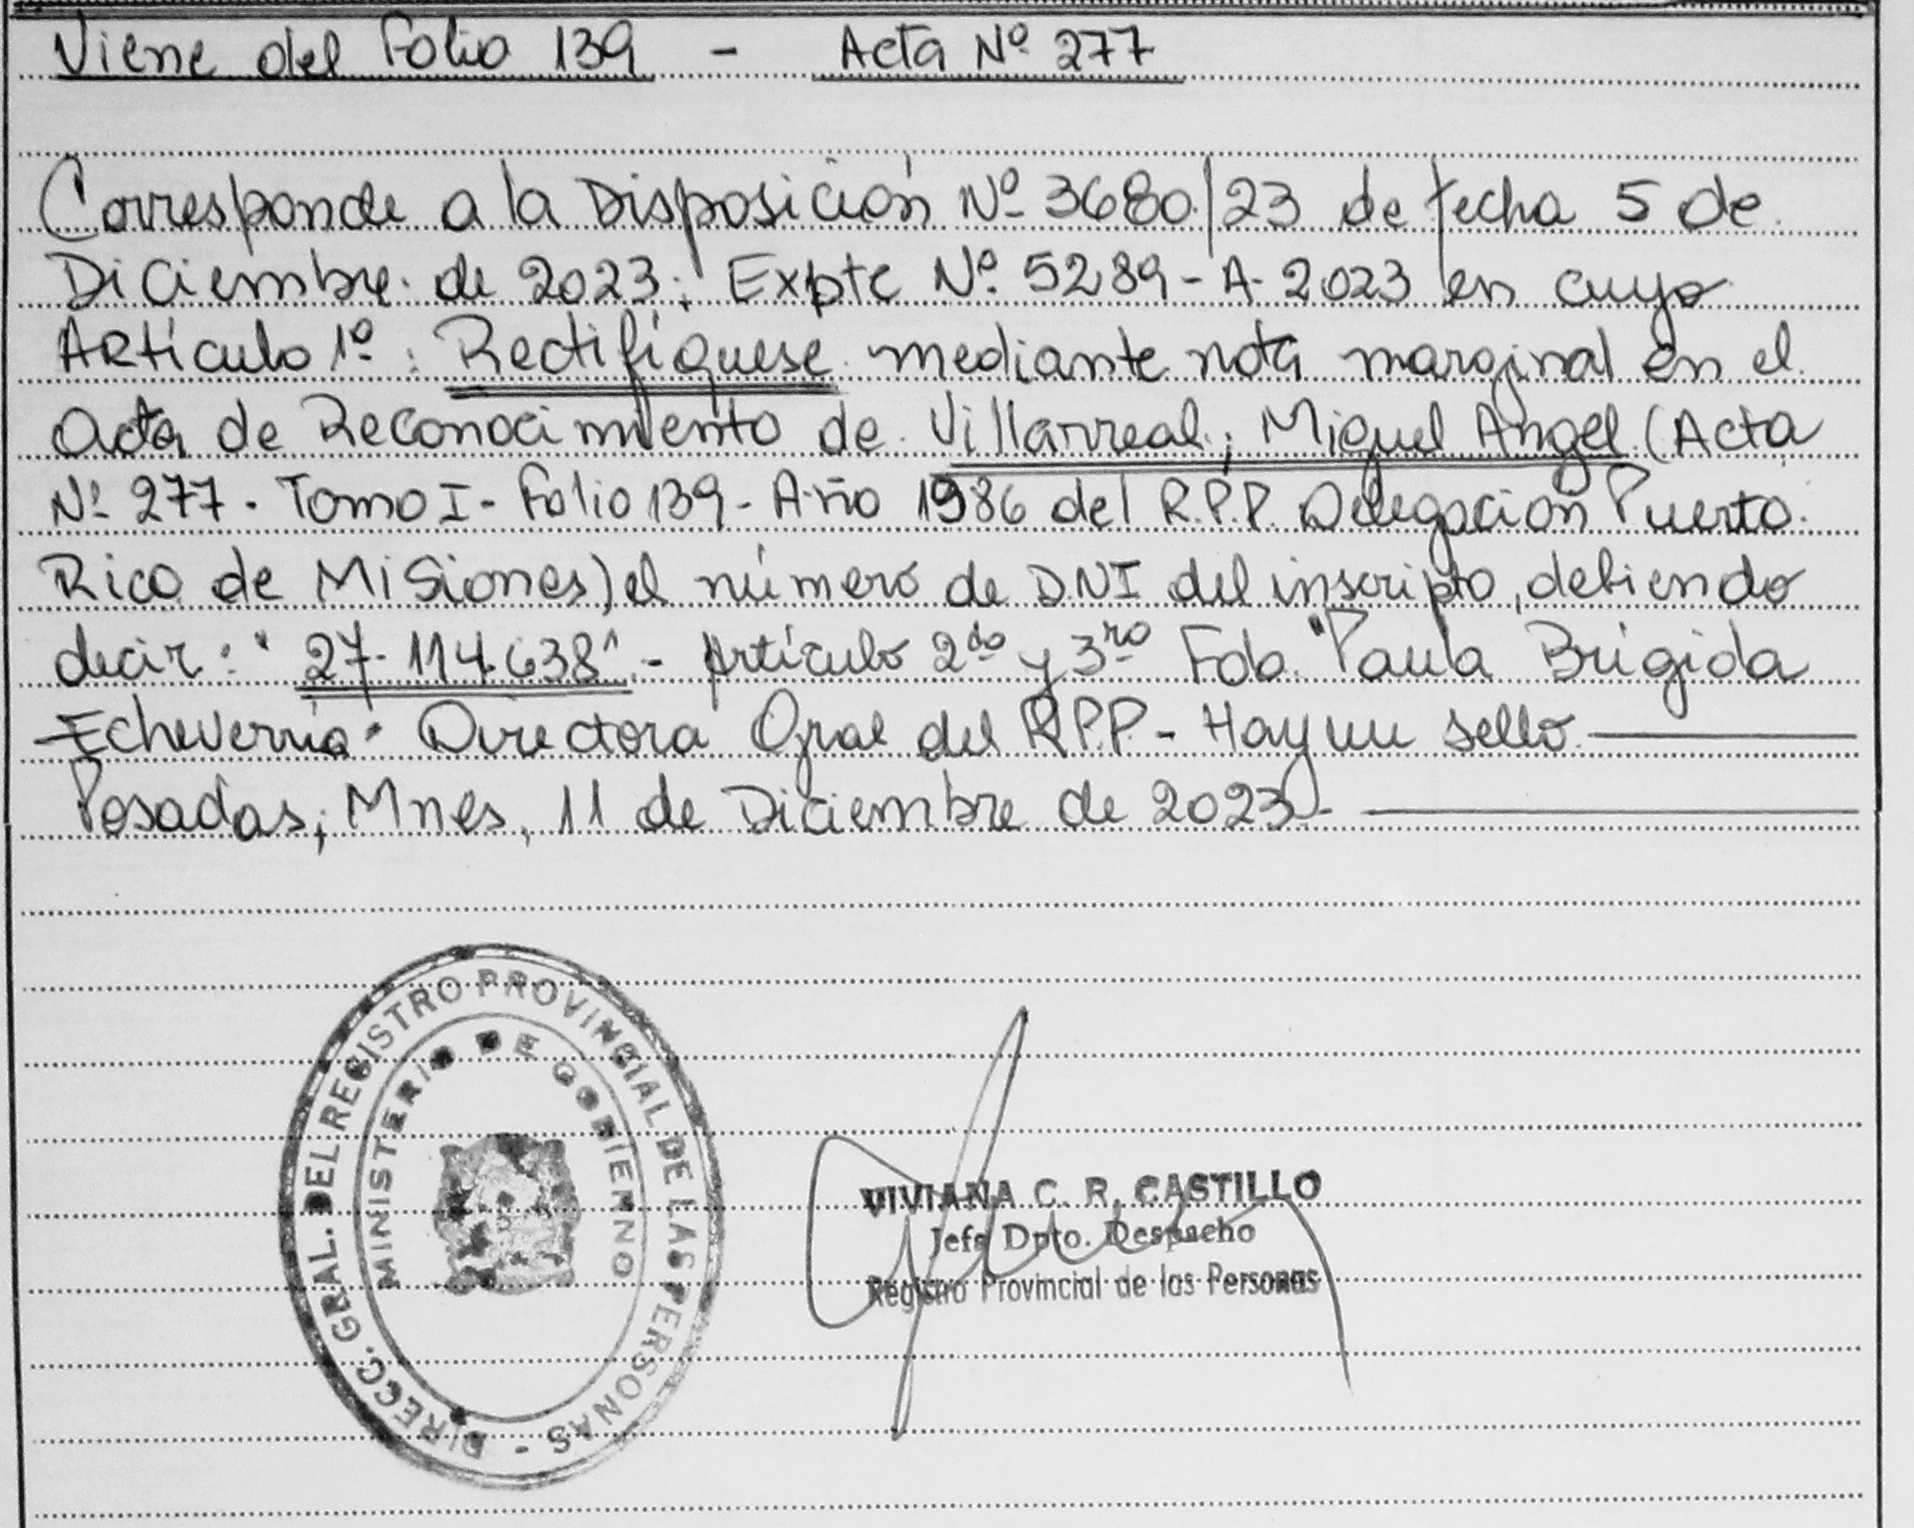 Viene del Folio 139 - Acta Nº 277
Corresponde a la Disposición Nº 3680/23 de fecha 5 de
Diciembre de 2023; Expte Nº 5289-A-2023 en cuyo
Artículo 1º: Rectifíquese mediante nota marginal en el
acta de Reconocimiento de Villarreal, Miguel Angel (Acta
Nº 277 - Tomo I - Folio 139 - Año 1986 del R.P.P. Delegación Puerto
Rico de Misiones) el número de DNI del inscripto, debiendo
decir: "27.114.638" - Artículo 2do y 3ro Fdo. "Paula Brígida
Echeverría" Directora Gral del R.P.P - Hay un sello.
Posadas, Mnes, 11 de Diciembre de 2023 -
DIRECC. GRAL. DEL REGISTRO PROVINCIAL DE LAS PERSONAS -
MINISTERIO DE GOBIERNO
VIVIANA C. R. CASTILLO
Jefa Dpto. Despacho
Registro Provincial de las Personas